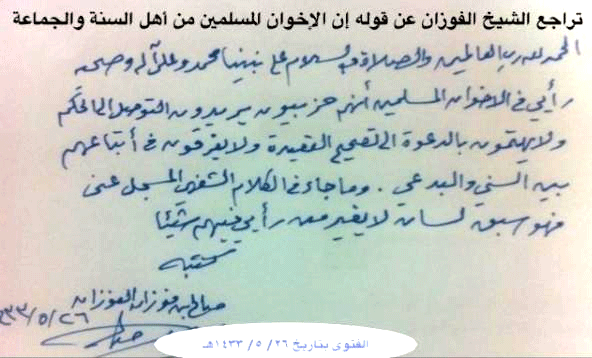 تراجع الشيخ الفوزان عن قوله إن الإخوان المسلمين من أهل السنة والجماعة
الحمد لله رب العالمين والصلاة والسلام على نبينا محمد وعلى آله وصحبه
رأيي في الاخوان المسلمين أنهم حزبيون يريدون التوصل إلى الحكم
ولا يهتمون بالدعوة الى تصحيح العقيدة ولا يفرقون في أتباعهم
بين السني والبدعي . وما جاء في الكلام الشفهي المسجل عني
فهو سبق لسان لا يغير من رأيي فيهم شيئا
كتبه
صالح بن فوزان الفوزان
٢٦/٥/١٤٣٣
الفتوى بتاريخ ٢٦/ ٥/ ١٤٣٣هـ